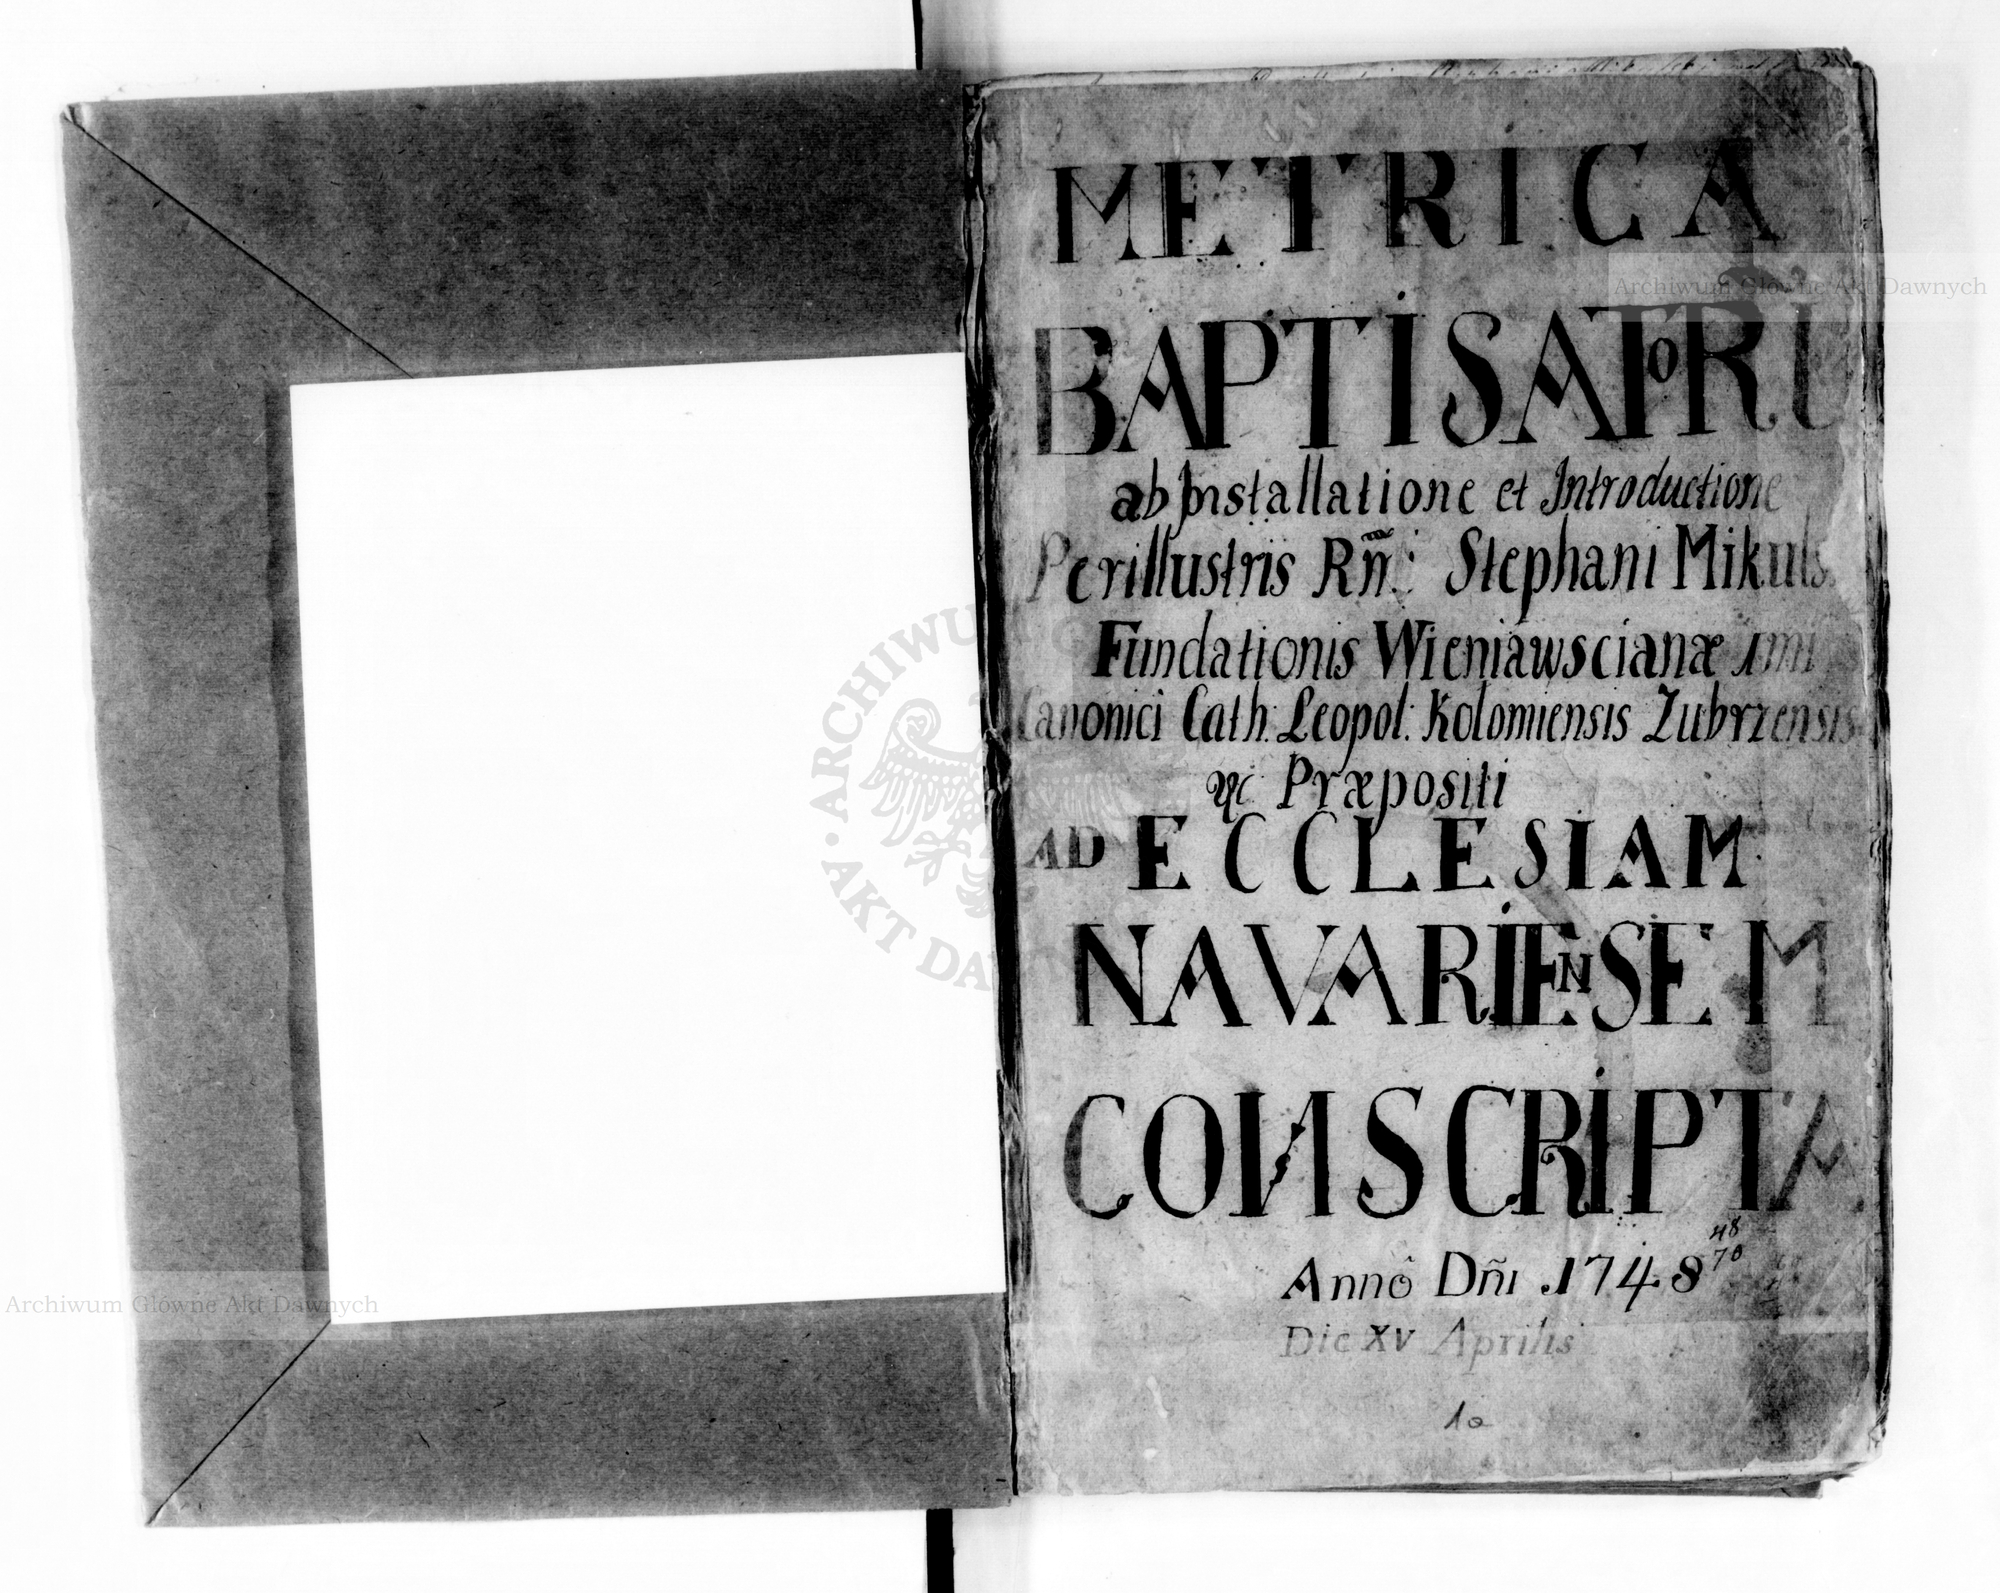 METRICA
BAPTISATORU
ab Installatione et Introductione
Perillustris Rñ: Stephani Mikuls
Fundationis Wieniawscianæ 1mi
Canonici Cath: Leopol: Kolomiensis Zubrzensis
&c Præpositi
AD ECCLESIAM
NAVARIENSEM
CONSCRIPTA
48
70
Annô Dñi .1748
Die XV Aprilis
10
Archiwum Główne Akt Dawnych
Archiwum Główne Akt Dawnych